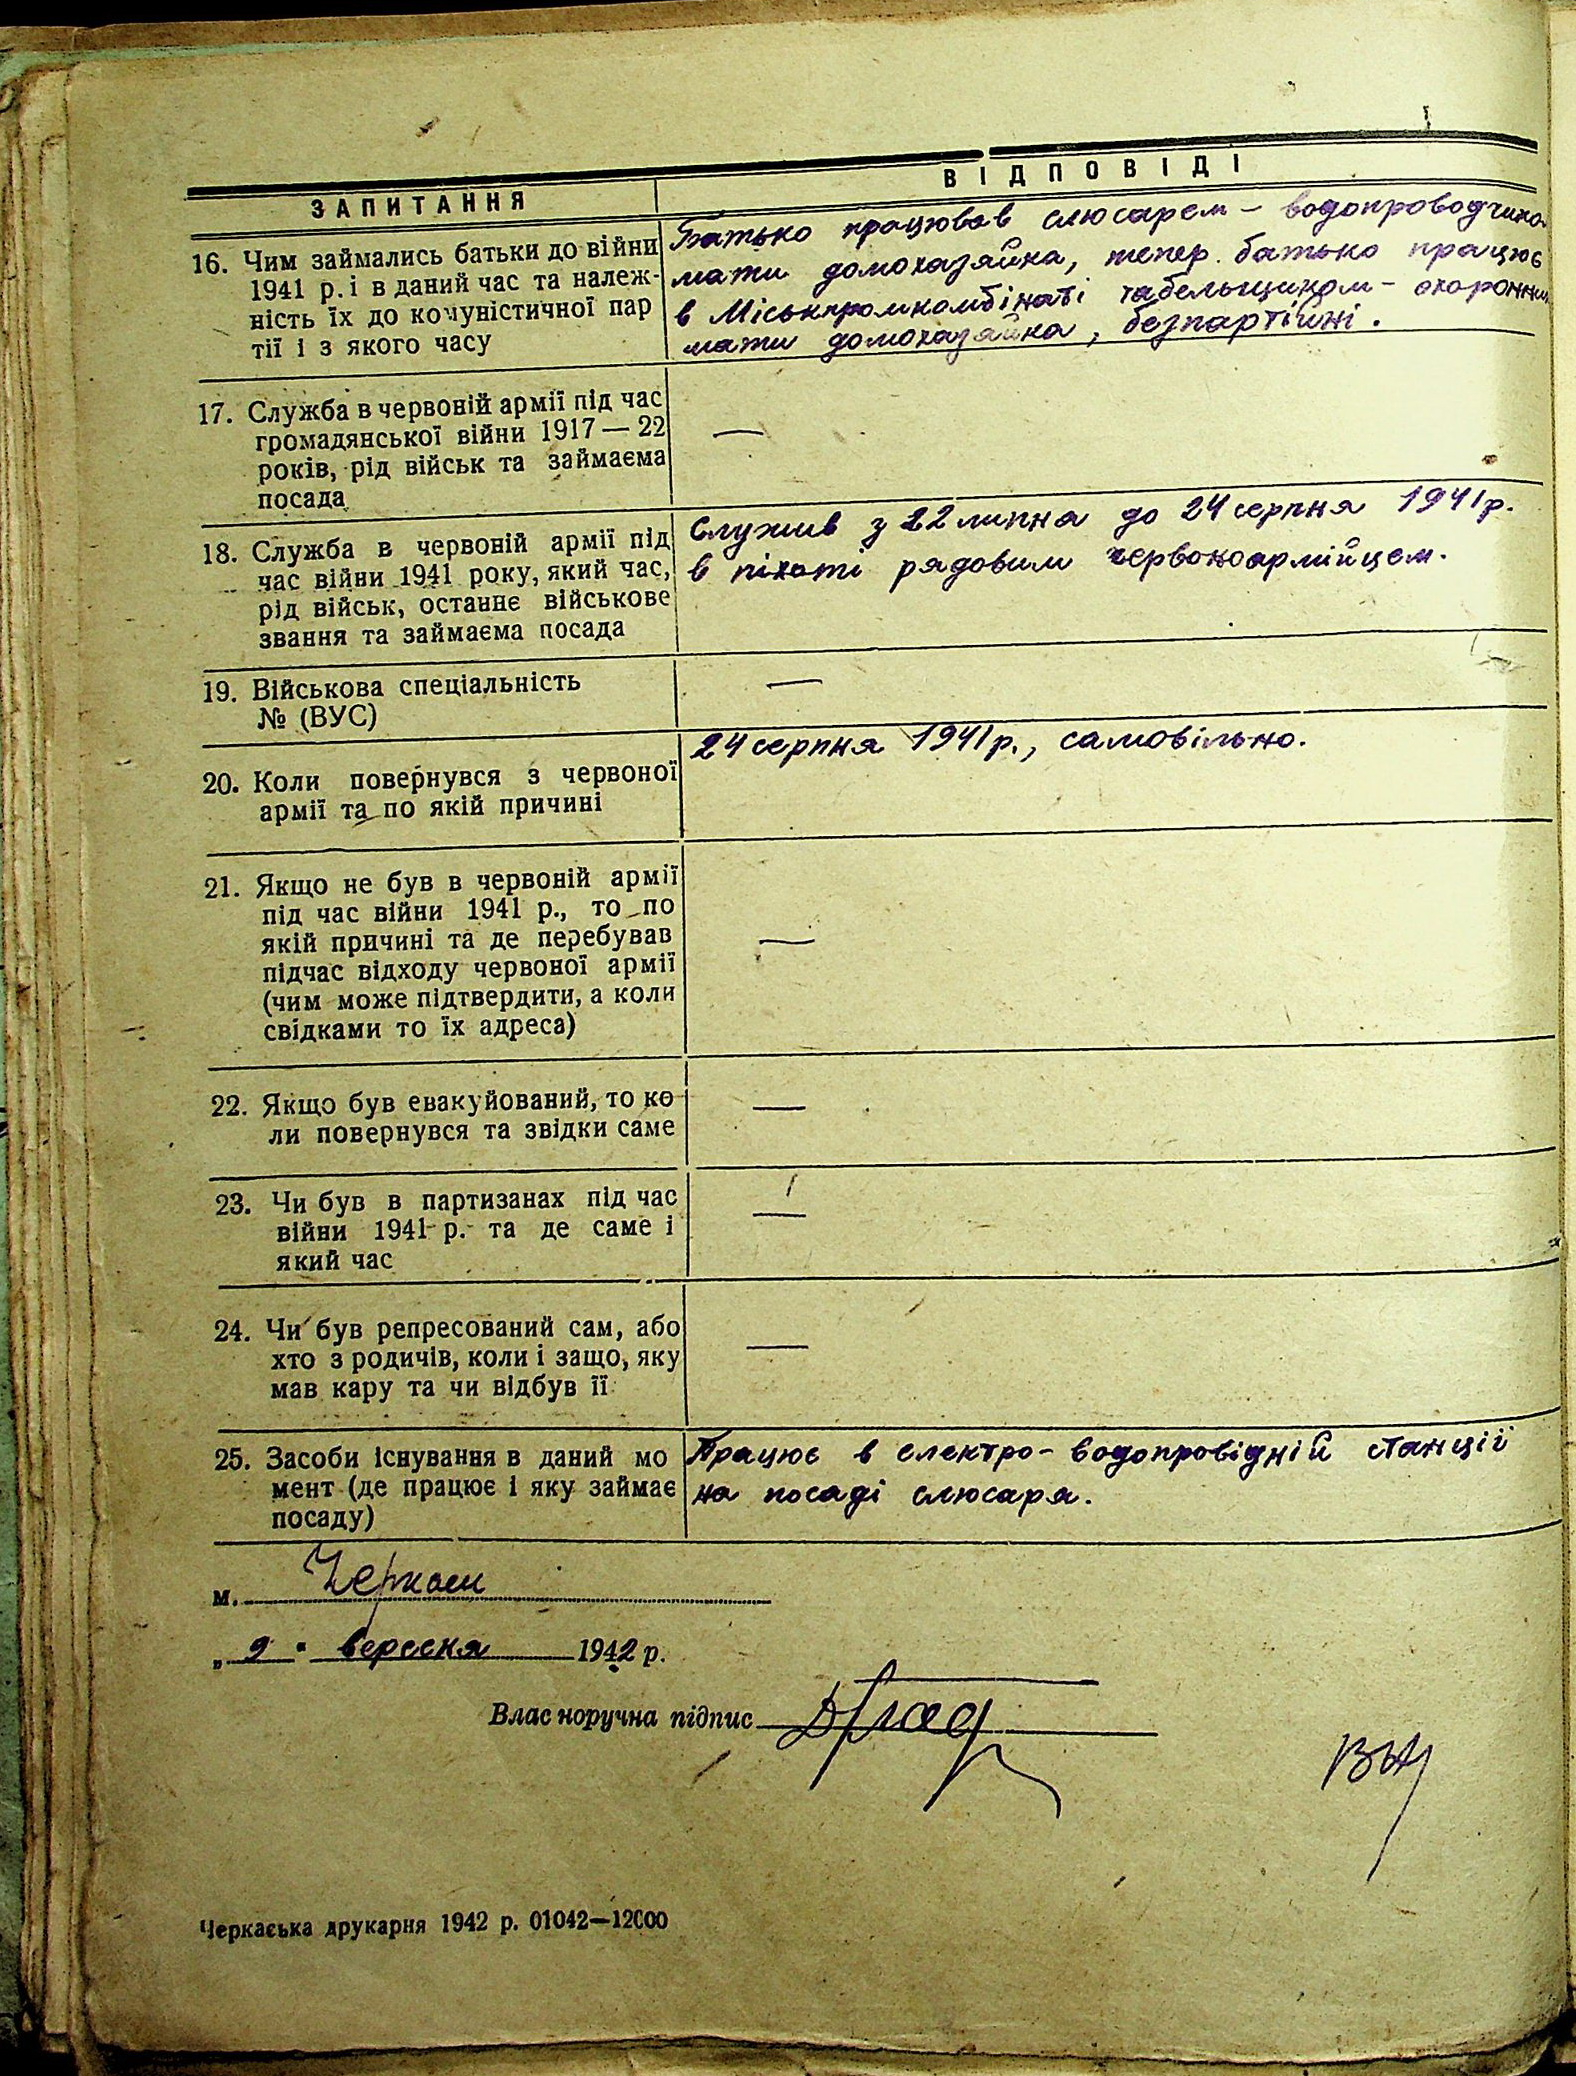 ЗАПИТАННЯ
ВІДПОВІДІ
16. Чим займались батьки до війни
1941 р. і в даний час та належ-
ність їх до комуністичної пар
тії і з якого часу
Батько працював слюсарем - водопроводчиком
мати домохазяйка, тепер батько працює
в Міськпромкомбінаті табельщиком - охоронник
мати домохазяйка, безпартійні.
17. Служба в червоній армії під час
громадянської війни 1917 — 22
років, рід військ та займаєма
посада
—
18. Служба в червоній армії під
час війни 1941 року, який час,
рід військ, останнє військове
звання та займаєма посада
Служив з 22 липня до 24 серпня 1941 р.
в піхоті рядовим червоноармійцем.
19. Військова спеціальність
№ (ВУС)
—
20. Коли повернувся з червоної
армії та по якій причині
24 серпня 1941 р., самовільно.
21. Якщо не був в червоній армії
під час війни 1941 р., то по
якій причині та де перебував
підчас відходу червоної армії
(чим може підтвердити, а коли
свідками то їх адреса)
—
22. Якщо був евакуйований, то ко
ли повернувся та звідки саме
—
23. Чи був в партизанах під час
війни 1941 р. та де саме і
який час
—
24. Чи був репресований сам, або
хто з родичів, коли і защо, яку
мав кару та чи відбув її
—
25. Засоби існування в даний мо
мент (де працює і яку займає
посаду)
Працює в електро - водопровідній станції
на посаді слюсаря.
м. Черкаси
„ 9 " вересня 1942 р.
Власноручна підпис
Черкаська друкарня 1942 р. 01042—12000